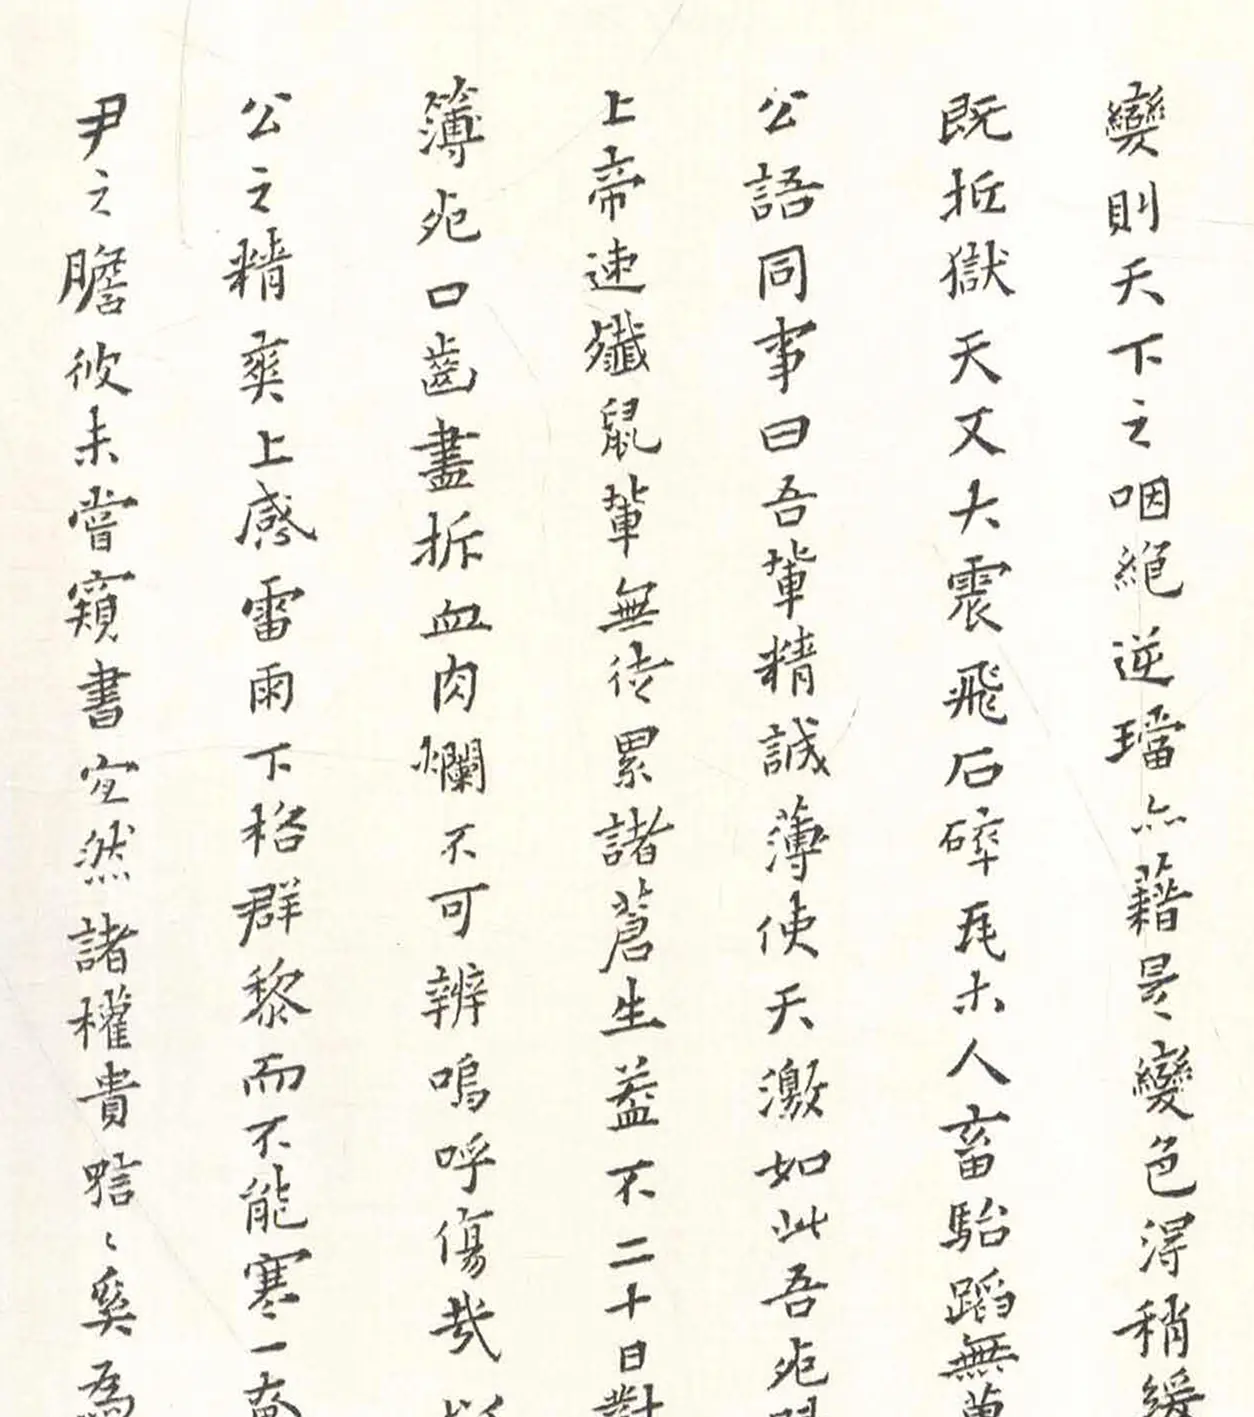 變則天下之咽絕逆璫亦藉是變色得稍緩
既抵獄天又大震飛石碎瓦木人畜駘蹈無萬
公語同事曰吾輩精誠薄使天激如此吾死
上帝速殲鼠輩無徒累諸蒼生蓋不二十日對
簿死口齒盡拆血肉爛不可辨嗚呼傷哉
公之精爽上感雷雨下格群黎而不能寒一
尹之膽彼未嘗窺書宜然諸權貴喑〻奚為